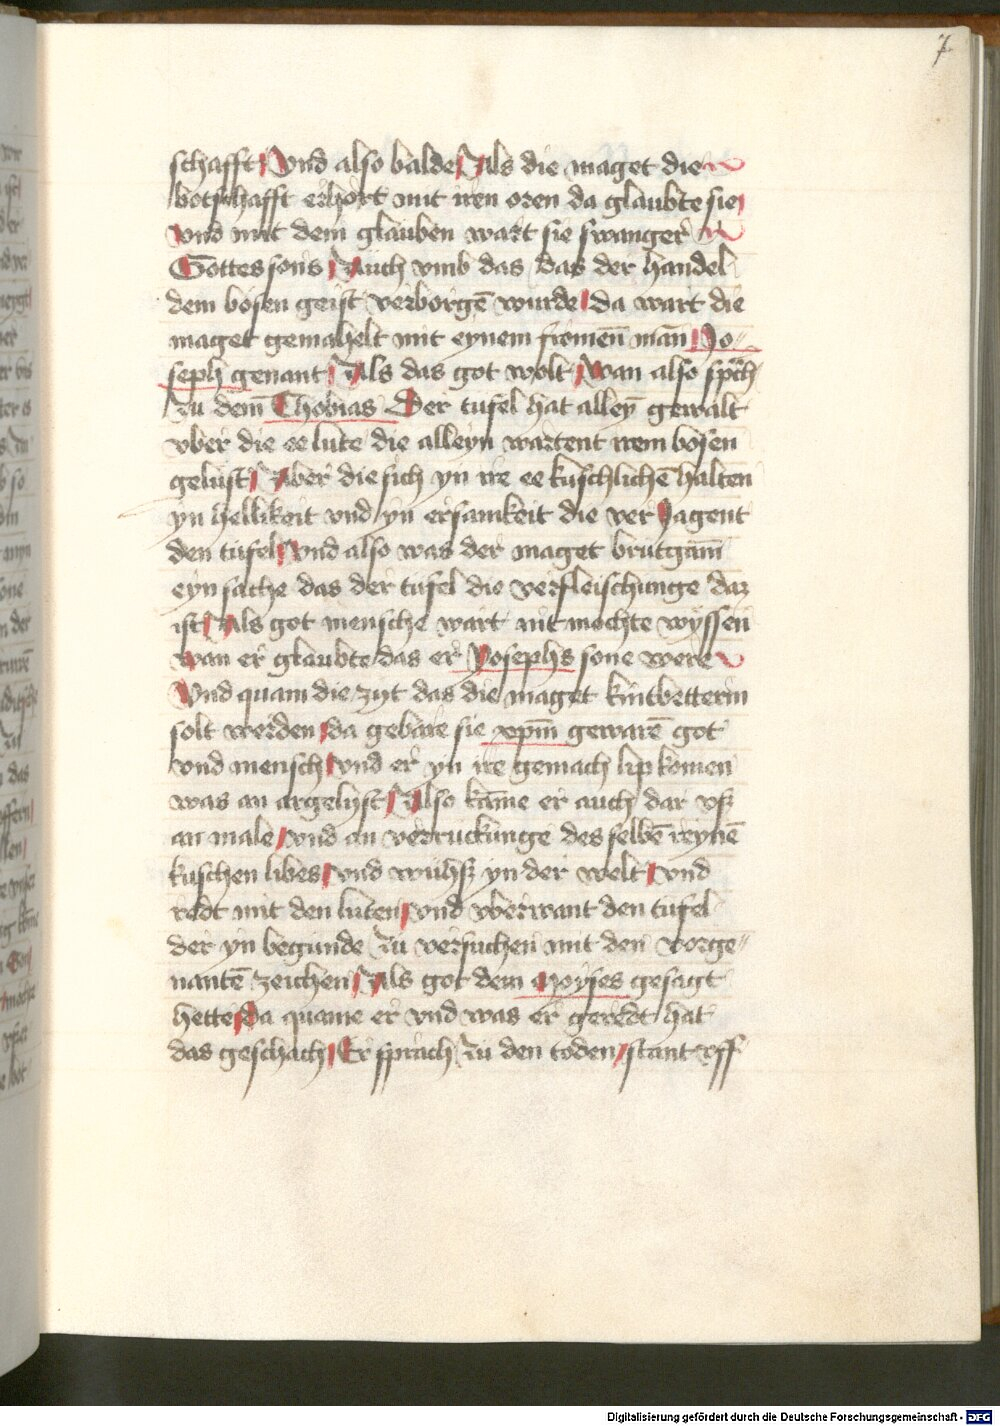 7
schafft / Vnd also balde / Als die maget die
botschafft erhort mit iren oren da glaubte sie /
vnd mit dem glauben wart sie swanger
Gottes sons / Auch vmb das / das der handel
dem bosen geist verborgē wurde / da wart die
maget gemahelt mit eynem fromēn mān / Jo〃
seph genant / Als das got wolt / wan also sp̄ch
zu dem̄ Thobias Der tufel hat alleȳ gewalt
vber die ee lute die alleyn wartent irem bosen
gelust / Aber die sich yn ire ee kuschlichē halten
yn hellikeit vnd yn ersamkeit die ver Jagent
den tufel / vnd also was der maget brutgam̄
eyn sache das der tufel die verfleischunge daz
ist / Als got mensche wart nit mochte wyssen
wan er glaubte das er Josephs sone were
Vnd quam die zyt das die maget kintbetterin
solt werden / da gebare sie xpm̄ gewarē got
vnd mensch / vnd er yn ire gemach lip komen
was an argelyst / Also kāme er auch dar vß
an male / vnd an verruckunge des selbē reynē
kuschen libes / vnd wuhß yn der welt / vnd
redt mit den luten / vnd vberwant den tufel
der yn begunde zu versuchen mit den vorge〃
nantē zeichen / Als got dem Moyses gesagt
hette / Da quame er vnd was er geredt hat
das geschach / Er sprach zu den toden / stant vff
Digitalisierung gefördert durch die Deutsche Forschungsgemeinschaft - DFG